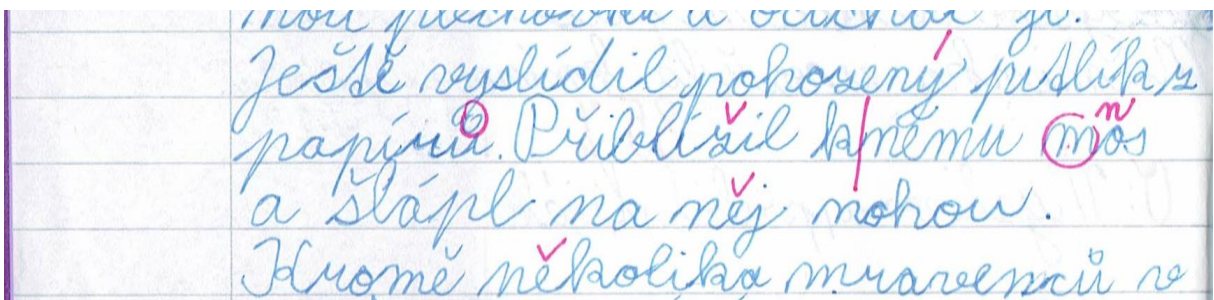 Ještě vyslídil pohozený pitlík z
papírů. Přiblížil k němu nos
a šlápl na něj nohou.
Kromě několika mravenců v